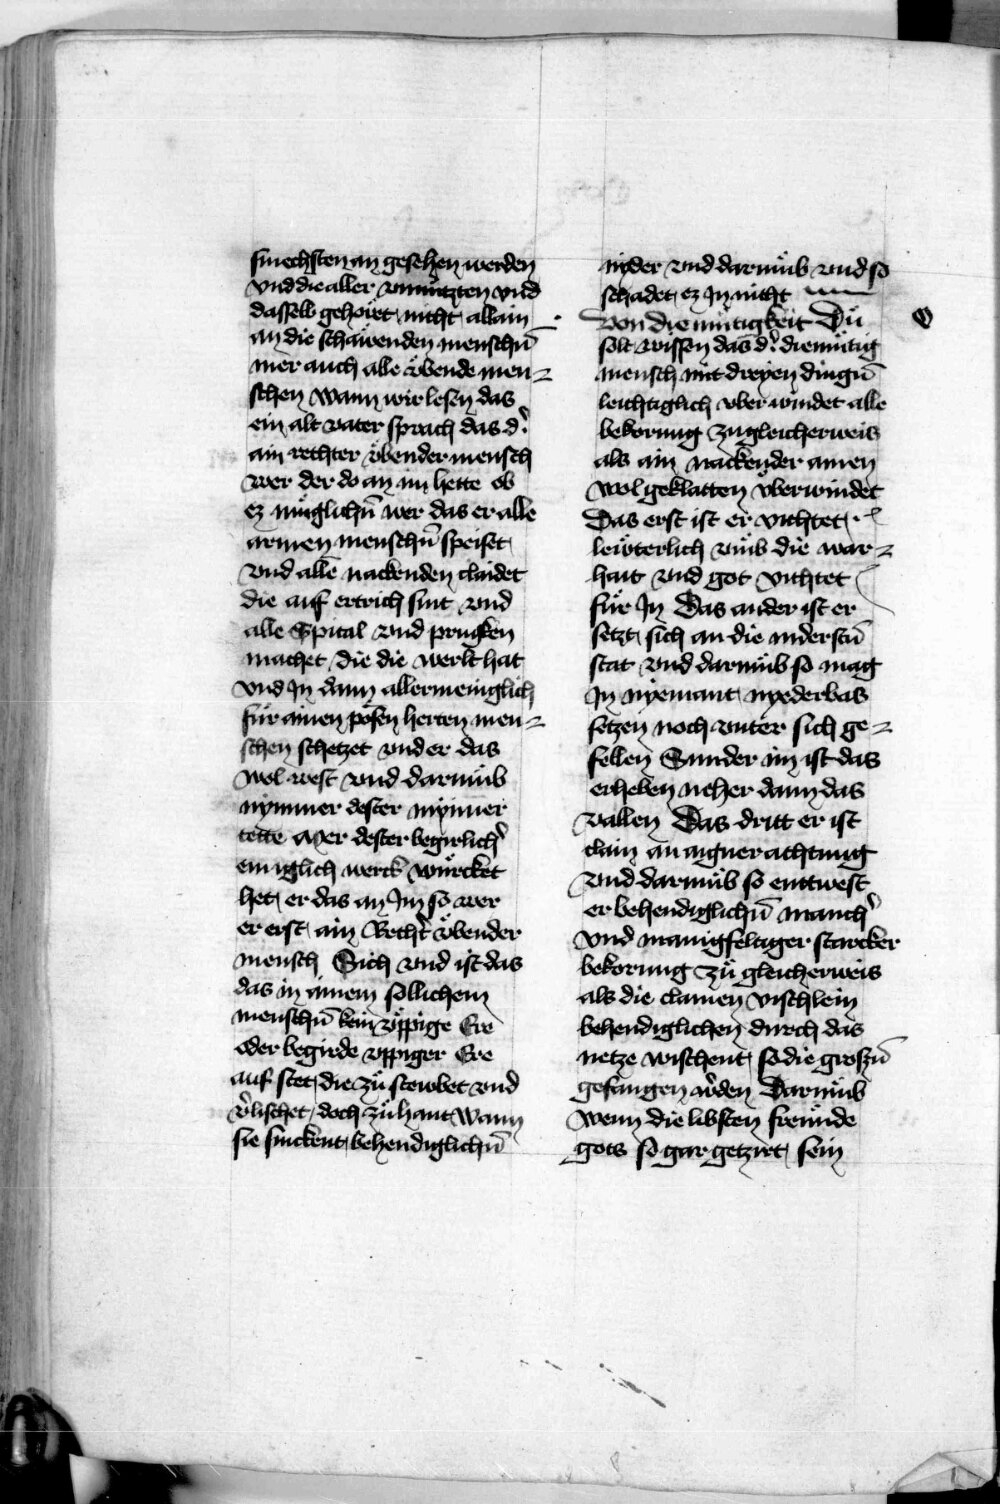 smechsten an gesehen werden
vnd die aller vnnützten vnd
dasselb gehöret nicht allain
an die schawenden menschñ
mer auch alle vͤbende men=
schen wann wir lesen das
ein alt vater sprach das d'
ain rechter vͤbender mensch
wer der do an im hette ob
ez müglichñ wer das er alle
armen menschñ speiset
vnd allen nackenden claidet
die auf ertrich sint vnd
alle Spital vnd prugken
machet die die werlt hat
vnd In dann allermeniglich
für ainen pösen herten men=
schen schetzet vnd er das
wol west vnd darumb
nymmer dester mynner
tette Mer dester begirlich'
ein iglich werck würcket
het er das an Im so wer
er erst ain Recht' vͤbender
mensch Sich vnd ist das
das in ainem sollichem
menschñ kein vͤppige Ere
oder begirde vppiger Ere
auf stet die zü sterbet vnd
v'lischet doch zühant Wann
sie sinckent behendiglichñ
nyder vnd darumb vnd so
schadet ez In nicht
Von diemütigkeit Dü
solt wissen das d' diemütig
mensch mit dreyen dingñ
leichtiglich vberwindet alle
bekorung zugleicherweis
als ain nackender ainen
wolgeklatten vberwindet
Das erst ist er vichtet
lewterlich vmb die war=
hait vnd got vichtet
für In Das ander ist er
setzt sich an die niderstñ
stat vnd darumb so mag
In nyemant nyederbas
setzen noch vnter sich ge=
fellen Sunder im ist das
erheben neher dann das
vallen Das dritt er ist
clain an aigner achtung
vnd darumb so enttwest
er behendiglichñ manch'
vnd manigfeltiger starcker
bekorung zü gleicherweis
als die clainen vischlein
behendiglichen durch das
netze wischent so die groszñ
gefangen w'den Darumb
wenn die libsten freunde
gots so gar getzirt sein